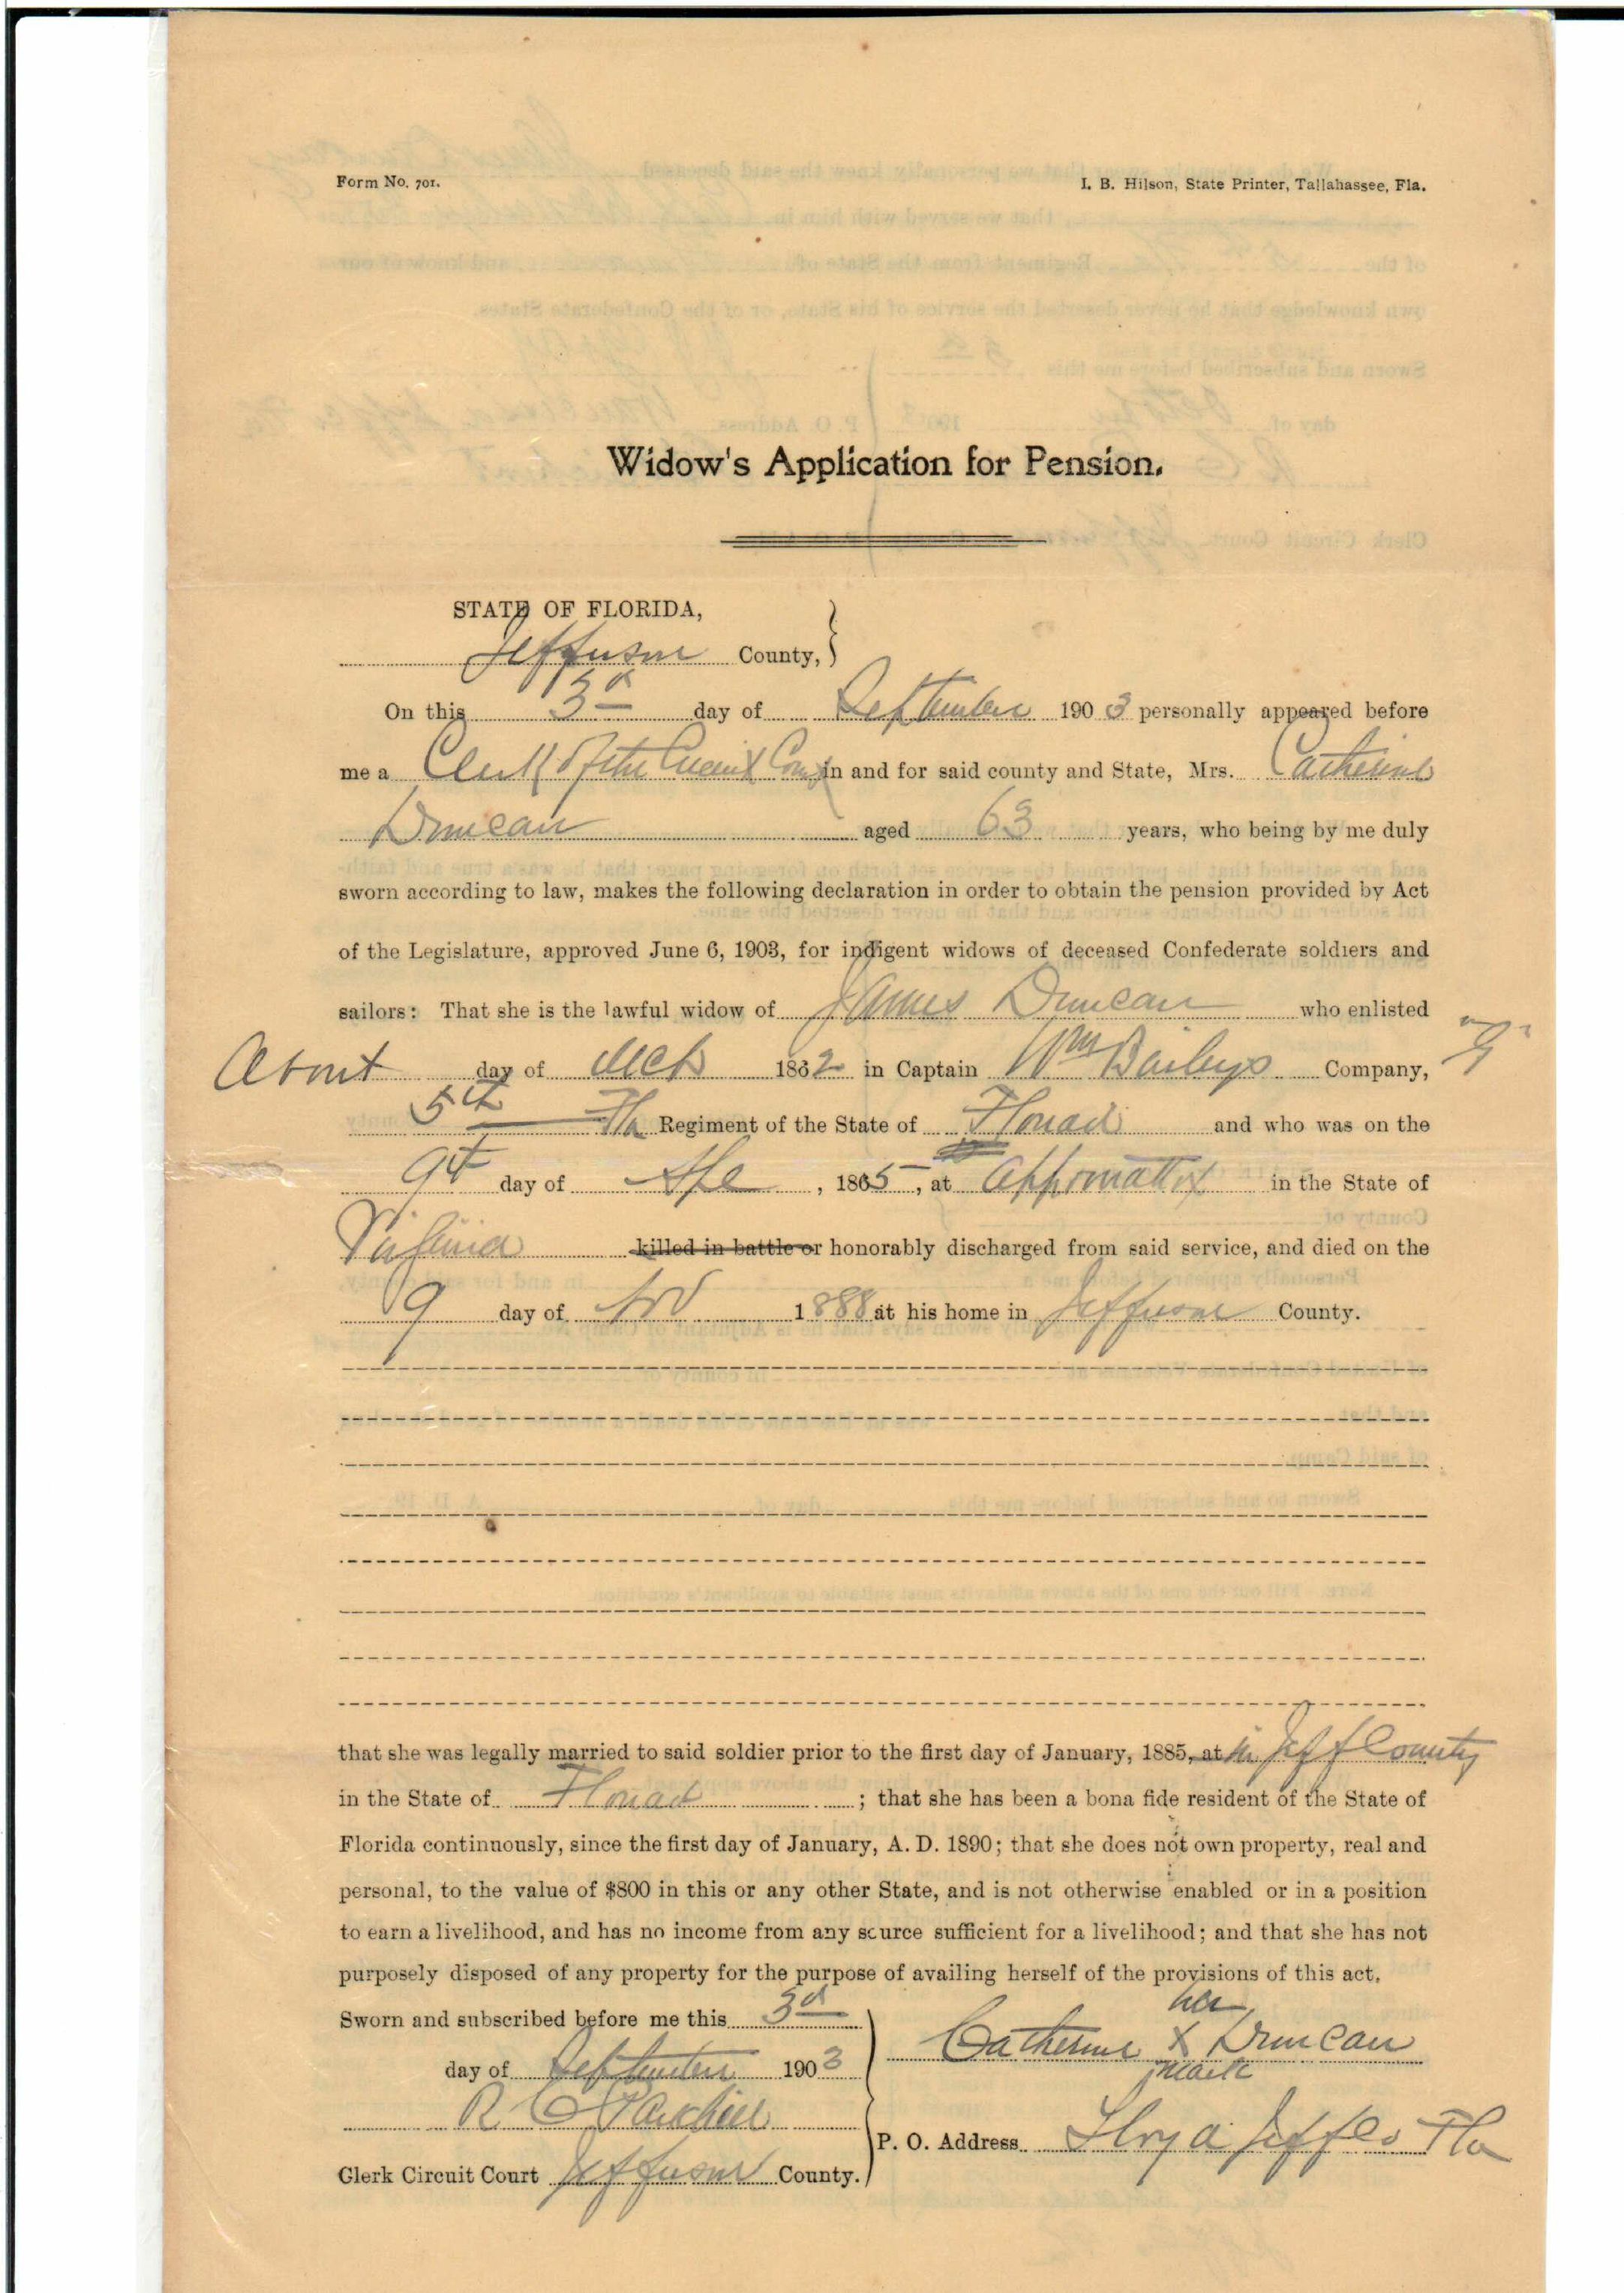 Form No. 701.
I. B. Hilson, State Printer, Tallahassee, Fla.
Widow's Application for Pension.
STATE OF FLORIDA,
Jefferson County,
On this 3d day of September 1903 personally appeared before
me a Clerk of the Circuit Court in and for said county and State, Mrs. Catherine
Duncan aged 63 years, who being by me duly
sworn according to law, makes the following declaration in order to obtain the pension provided by Act
of the Legislature, approved June 6, 1903, for indigent widows of deceased Confederate soldiers and
sailors: That she is the lawful widow of James Duncan who enlisted
About day of Mch 1862 in Captain Wm Baileys Company, "G"
5th Fla Regiment of the State of Florida and who was on the
9th day of Apl, 1865, at Appomattox in the State of
Virginia killed in battle or honorably discharged from said service, and died on the
9 day of Nov 1888 at his home in Jefferson County.
that she was legally married to said soldier prior to the first day of January, 1885, at in Jeff County
in the State of Florida; that she has been a bona fide resident of the State of
Florida continuously, since the first day of January, A. D. 1890; that she does not own property, real and
personal, to the value of $800 in this or any other State, and is not otherwise enabled or in a position
to earn a livelihood, and has no income from any source sufficient for a livelihood; and that she has not
purposely disposed of any property for the purpose of availing herself of the provisions of this act.
Sworn and subscribed before me this 3d
day of September 1903
R C Parkhill
Clerk Circuit Court Jefferson County.
her
Catherine X Duncan
mark
P. O. Address Lloyd Jeff Co Fla